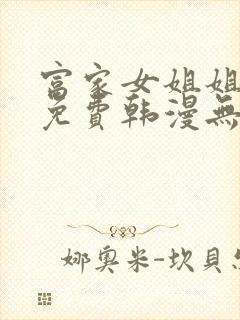 富家女姐姐
免費韩漫無
娜奥米-坎貝